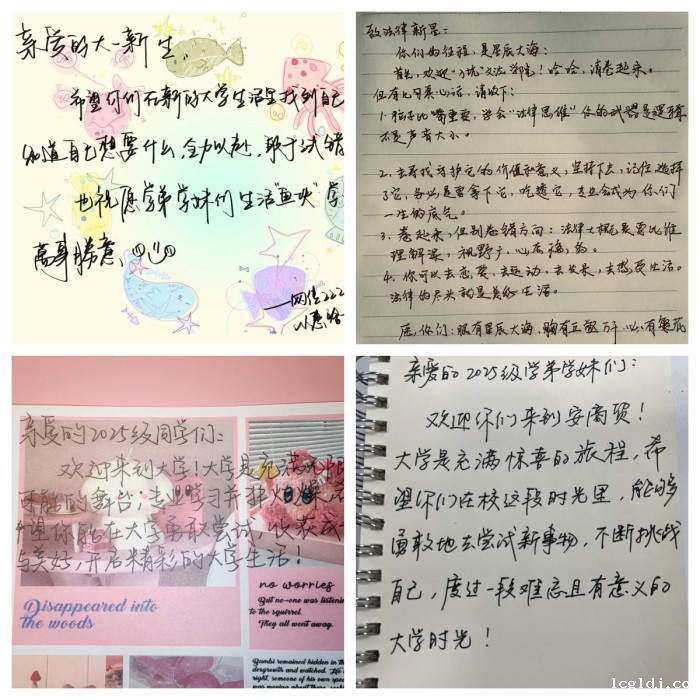 亲爱的大一新生、
希望你们在新的大学生活里找到自己
知道自己想要什么,全力以赴,敢于试错
也祝愿学弟学妹们生活"鱼"快 学
万事胜意、
网信222
致法律新星:
你们的征程,是星辰大海:
首先,欢迎"入坑"法 !哈哈,请卷起来。
但有几句真心话,请收下:
1.脑子比嘴重要,学会"法律思维"你的武器是逻辑
不是声音大小。
2.去寻找守护它的价值和意义,坚持下去,记住,选择
了它,务必是要拿下它,吃透它,专业会成为你们
一生的底气。
3.卷起来,但别卷错方向:法律人概是要比谁
理解深,视野广,心态稳,的。
4.你可以去恋爱,去运动,去发呆,去感受生活。
法律的尽头就是美好生活。
愿你们:眼有星辰大海,胸有丘壑万千,心有繁花
亲爱的2025级同学们:
欢迎来到大学!大学是充满无限
可能的舞台;专业学习并非火 ,希
望你能在大学勇敢尝试,收获成长
与美好,开启精彩的大学生活!
Disappeared into
the woods
no worries
But no-one was listening
to the squirrel.
They all went away.
Bambi remained hidden in the
undergrowth and watched. He
right, someone of his own spec
was moving about there,
亲爱的2025级学弟学妹们:
欢迎你们来到安商贸!
大学是充满惊喜的旅程,希
望你们在校这段时光里,能够
勇敢地去尝试新事物,不断挑战
自己,度过一段难忘且有意义的
大学时光!
lcgldj.com